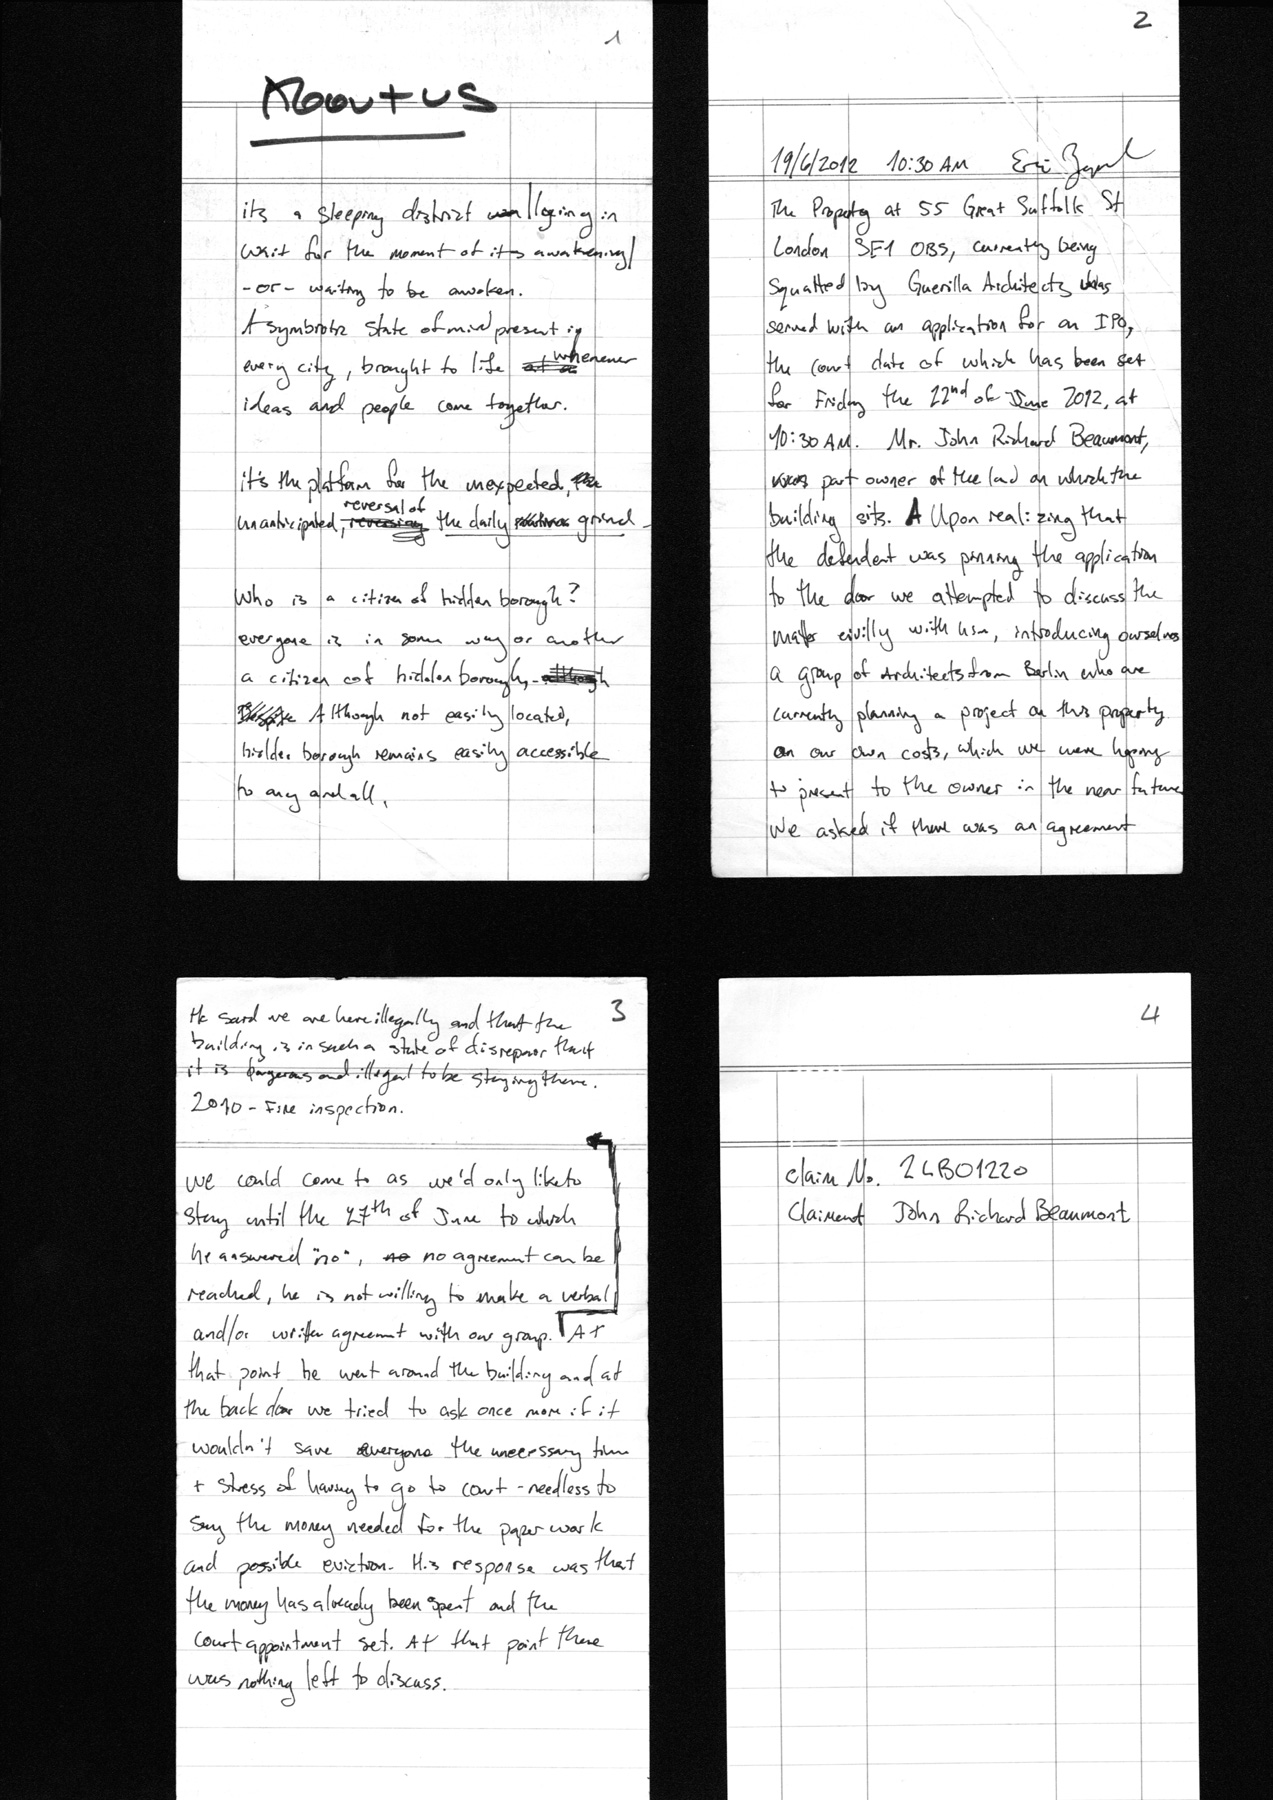 1
About us
its a sleeping district laying in
wait for the moment of its awakening/
-or- waiting to be awoken.
A symbiotic state of mind present in
every city, brought to life, whenever
ideas and people come together.
it's the platform for the unexpected,
unanticipated, reversal of the daily grind
Who is a citizen of hidden borough?
everyone is in some way or another
a citizen of hidden borough, although
Despite Although not easily located,
hidden borough remains easily accessible
to any and all.
2
19/6/2012 10:30 AM Eric
The Property at 55 Great Suffolk St
London SE1 0BS, currently being
squatted by Guerilla Architects was
served with an application for an IPO,
the court date of which has been set
for Friday the 22nd of June 2012, at
10:30 AM. Mr. John Richard Beaumont,
part owner of the land on which the
building sits. A Upon realizing that
the defendent was pinning the application
to the door we attempted to discuss the
matter civilly with him, introducing ourselves
a group of Architects from Berlin who are
currently planning a project on this property
on our own costs, which we were hoping
to present to the owner in the near future
We asked if there was an agreement
3
He said we are here illegally and that the
building is in such a state of disrepair that
it is dangerous and illegal to be staying there.
2010 - Fire inspection.
we could come to as we'd only like to
stay until the 27th of June to which
he answered "no", no no agreement can be
reached, he is not willing to make a verbal
and/or written agreement with our group. At
that point he went around the building and at
the back door we tried to ask once more if it
wouldn't save everyone the unecessary time
+ stress of having to go to court - needless to
say the money needed for the paper work
and possible eviction. His response was that
the money has already been spent and the
court appointment set. At that point there
was nothing left to discuss.
4
claim No. 2LB01220
Claiment John Richard Beaumont